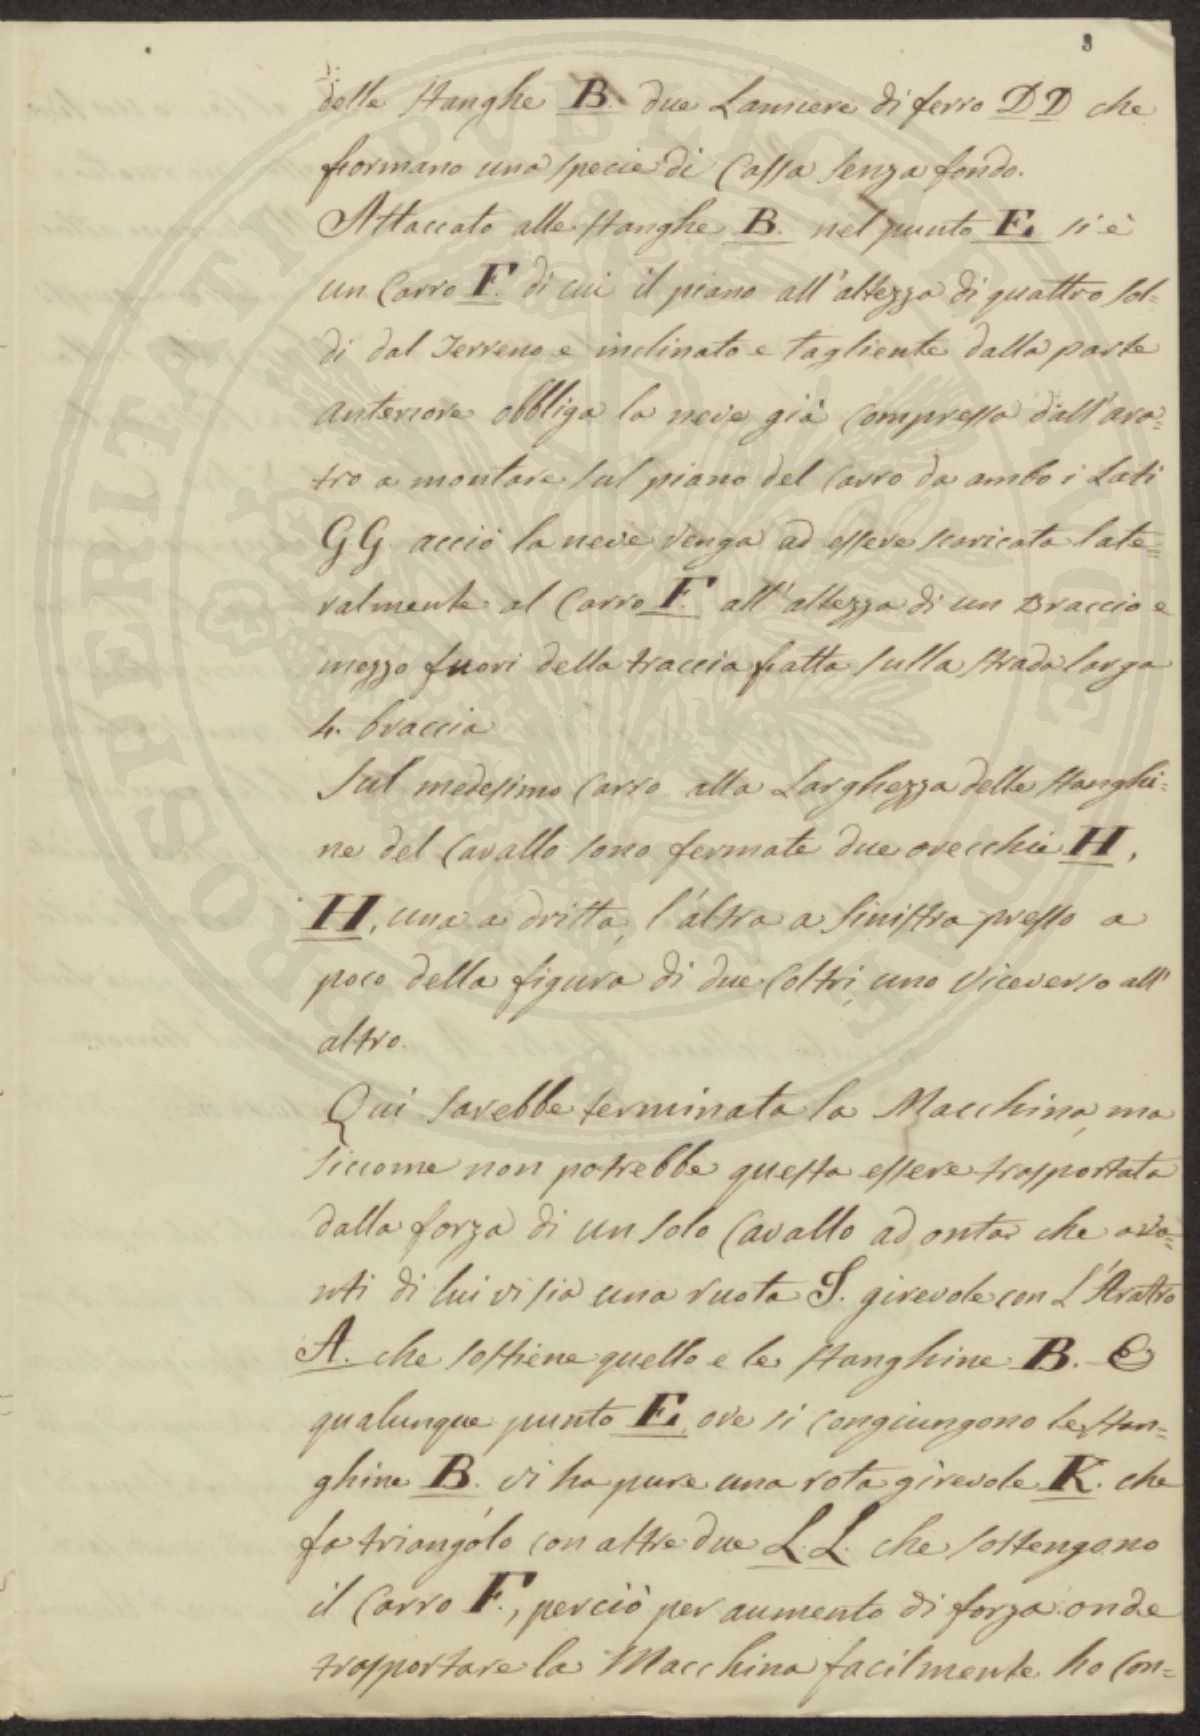 3
delle stanghe B. due Lamiere di ferro D D che
formano una specie di Cassa senza fondo.
Attaccato alle stanghe B. nel punto E. si è
un Carro F. di cui il piano all'altezza di quattro sol=
di dal Terreno e inclinato e tagliente dalla parte
anteriore obbliga la neve già compressa dall'ara=
tro a montare sul piano del Carro da ambo i Lati
GG acciò la neve venga ad essere scaricata late=
ralmente al Carro F. all'altezza di un Braccio e
mezzo fuori della traccia fatta sulla strada larga
4. braccia
Sul medesimo Carro alla Larghezza delle stanghi=
ne del Cavallo sono fermate due orecchie H,
H, una a dritta, l'altra a sinistra presso a
poco della figura di due Coltri, uno viceverso all'
altro.
Qui sarebbe terminata la Macchina, ma
siccome non potrebbe questa essere trasportata
dalla forza di un solo Cavallo ad onta che ava=
nti di lui vi sia una ruota J. girevole con L'Aratro
A. che sostiene quello e le stanghine B. E
qualunque punto E. ove si congiungono le stan=
ghine B. vi ha pure una rota girevole K. che
fa triangolo con altre due L. L. che sostengono
il Carro F., perciò per aumento di forza onde
trasportare la Macchina facilmente ho con=
PROSPERITATI PUBLICAE AUGENDAE